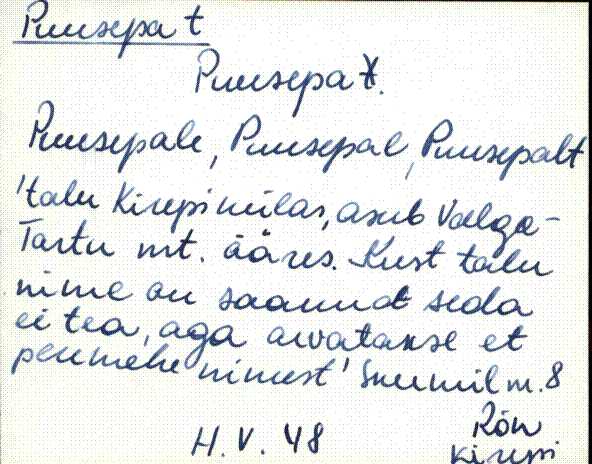 Puusepa t
Puusepa t.
Puusepale, Puusepal, Puusepalt
'talu Kirepi külas, asub Valga-
Tartu mt. ääres. Kust talu
nime on saanud seda
ei tea, aga arvatakse et
peremehe nimest' m. 8
H. V. 48 Rõn
Kirepi